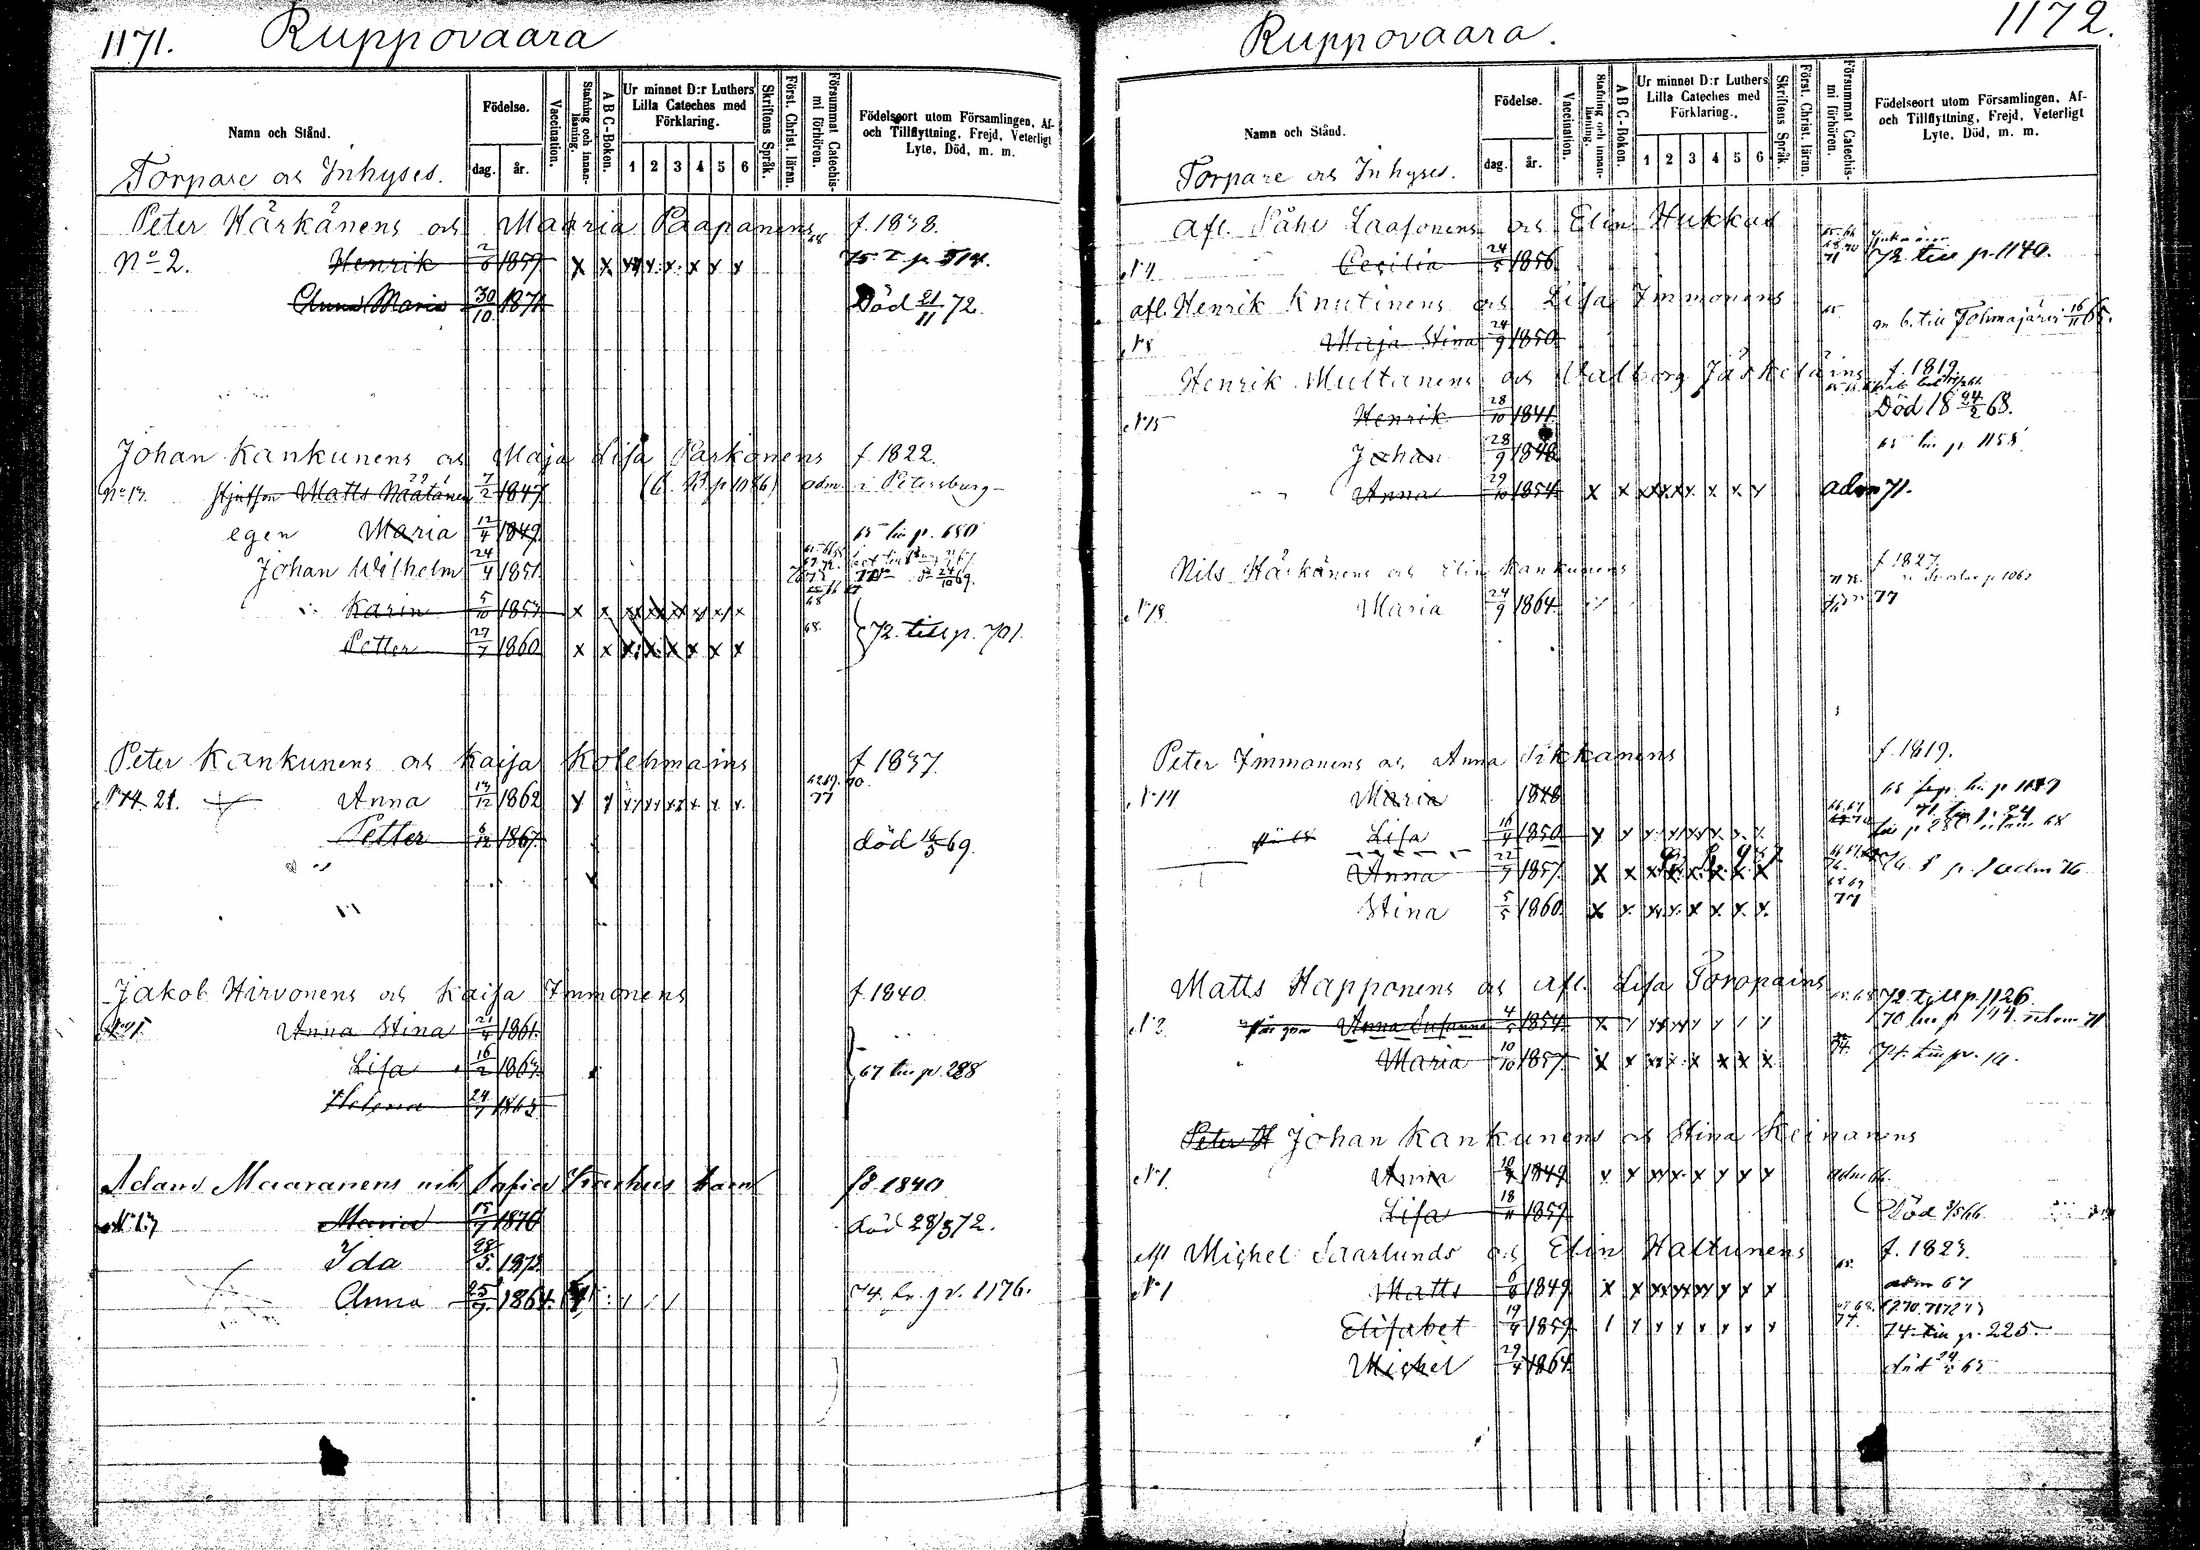 1171. Ruppovaara
Namn och Stånd.
Födelse.
dag. år.
Vaccination.
Stafning och innanläsning.
A B C-Boken.
Ur minnet D:r Luthers Lilla Cateches med Förklaring.
1 2 3 4 5 6
Skriftens Språk.
Först. Christ. läran.
Försummat Catechismi förhören.
Födelseort utom Församlingen, Af- och Tillflyttning, Frejd, Veterligt Lyte, Död, m. m.
Torpare och Inhyses.
Peter Härkänens och Maaria Paapanens f. 1838.
No 2. Henrik 2/6 1857 x x x x x x x x 75 T. p. 514.
Anna Maria 30/10 1871 Död 21/11 72.
Johan Kankunens och Maja Lisa Parkonens f. 1822.
No 13. Stjufson Matts Näätänen 7/2 1847 adm i Petersburg
egen Maria 12/4 1849 65 till p. 680
Johan Wilhelm 24/4 1851
Karin 5/10 1857 x x x x x x x x 68
Petter 27/7 1860 x x x x x x x x 68. 72. till p. 701.
Peter Kankunens och Kaisa Kolehmains f 1837.
No 14 21. Anna 13/12 1862 x x x x x x x x 77
Petter 6/12 1867 död 16/5 69.
Jakob Hirvonens och Kaisa Immonens f. 1840.
Anna Stina 21/4 1861.
Lisa 16/2 1863. 67 till p. 288
Helena 24/7 1865
Adam Maaranens och Sofia barn f. 1840
No 17 Maria 15/7 1870 död 28/3 72.
Ida 28/5 1872.
Anna 25/7 1864. 74. p. 1176.
1172.
Ruppovaara.
Namn och Stånd.
Födelse.
dag. år.
Vaccination.
Stafning och innanläsning.
A B C-Boken.
Ur minnet D:r Luthers Lilla Cateches med Förklaring.
1 2 3 4 5 6
Skriftens Språk.
Först. Christ. läran.
Försummat Catechismi förhören.
Födelseort utom Församlingen, Af- och Tillflyttning, Frejd, Veterligt Lyte, Död, m. m.
Torpare och Inhyses.
Afl. Påhl Laasonens och Elin Hukkas
No 4 Cecilia 24/5 1856 72 till p. 1140.
afl. Henrik Knutinens och Lisa Immonens 65
No 8 Maja Stina 24/9 1850 m b. till Tohmajärvi 16/11 65.
Henrik Multanens och Valborg Jäskeläins f. 1819.
No 15 Henrik 28/10 1841 Död 18 24/2 68.
Johan 28/9 1846 65 till p 1158
Anna 29/10 1854 x x x x x x x x adm 71.
Nils Härkänens och Elin Kankunens f 1827
No 18 Maria 24/9 1864 77
Peter Immonens och Anna Sikkanens f. 1819.
No 14 Maria 1848
Lisa 16/4 1850 x x x x x x x x
Anna 22/7 1857 x x x x x x x x adm 76
Stina 5/5 1860 x x x x x x x x 77
Matts Happonens och afl. Lisa Toropains
No 2 Anna Susanna 4/5 1854 72 till p. 1126
Maria 10/10 1857 x x x x x x x x 74. till p. 10.
Peter H Johan Kankunens och Stina Keinanens
No 1 Anna 10/4 1849 x x x x x x x x adm 66
Lisa 18/11 1857 Död 3/5 66
Afl Michel Saarlunds och Elin Haltunens f. 1823.
No 1 Matts 6/8 1849 x x x x x x x x adm 67
Elisabet 19/4 1859 74. till p. 225.
Michel 29/4 1864 död 24/2 65